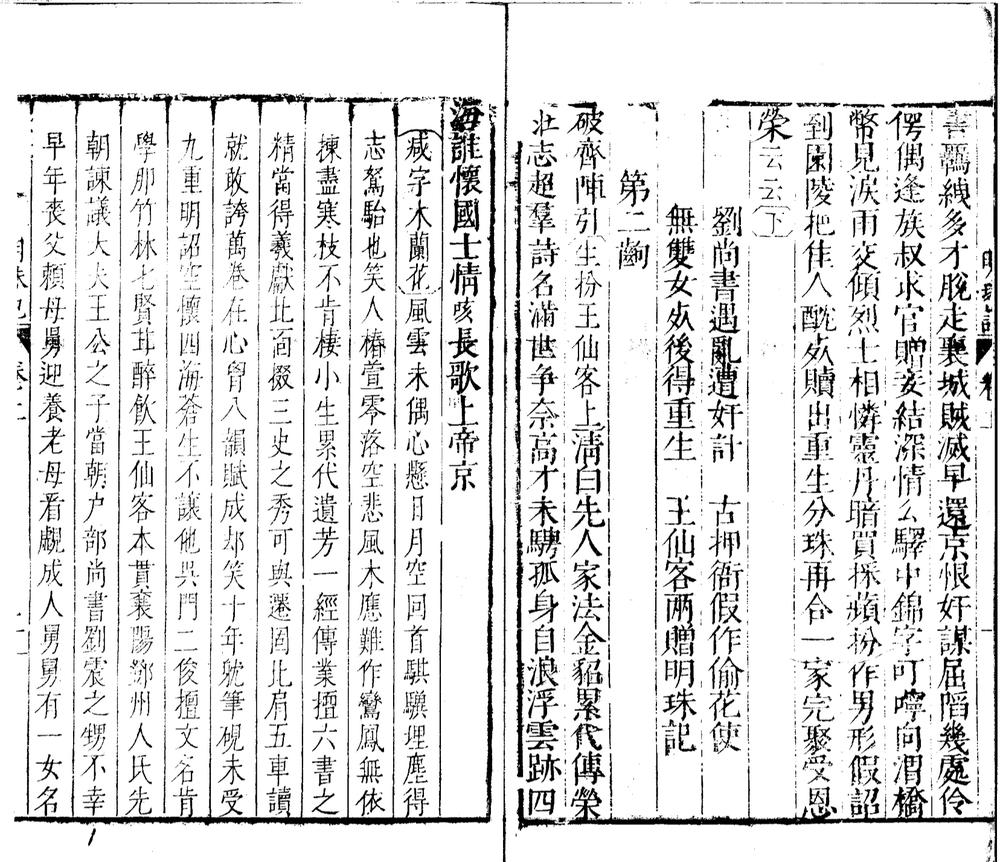 書羈綫多才脫走襄城賊滅早還京恨奸謀屈䧟幾處伶
俜偶逢族叔求官贈妾結深情長驛中錦字叮嚀向渭橋
幣見淚雨交傾烈士相憐靈丹暗買採蘋扮作男形假詔
到園陵把佳人酖死贖出重生分珠再合一家完聚受恩
榮云云下
劉尚書遇亂遭奸計　古押衙假作偷花使
無雙女死後得重生　王仙客兩贈明珠記
第二齣
破齊陣引生扮王仙客上淸白先人家法金貂累代傳榮
壯志超羣詩名滿世争奈高才未騁孤身自浪浮雲跡四
海誰懷國士情咳長歌上帝京
減字木蘭花風雲未偶心懸日月空回首騏驥埋塵得
志駑駘也笑人椿萱零落空悲風木應難作鸞鳳無依
揀盡寒枝不肯棲小生累代遺芳一經傳業擅六書之
精當得羲獻北面掇三史之秀可與遷固比肩五車讀
就敢誇萬卷在心胷八韻賦成却笑十年就筆硯未受
九重明詔空懷四海蒼生不讓他吳門二俊擅文名肯
學那竹林七賢茸醉飲王仙客本貫襄陽鄧州人氏先
朝諫議大夫王公之子當朝户部尚書劉震之甥不幸
早年喪父賴母舅迎養老母看覷成人舅舅有一女名
明珠記
卷上
明珠記
卷上
一